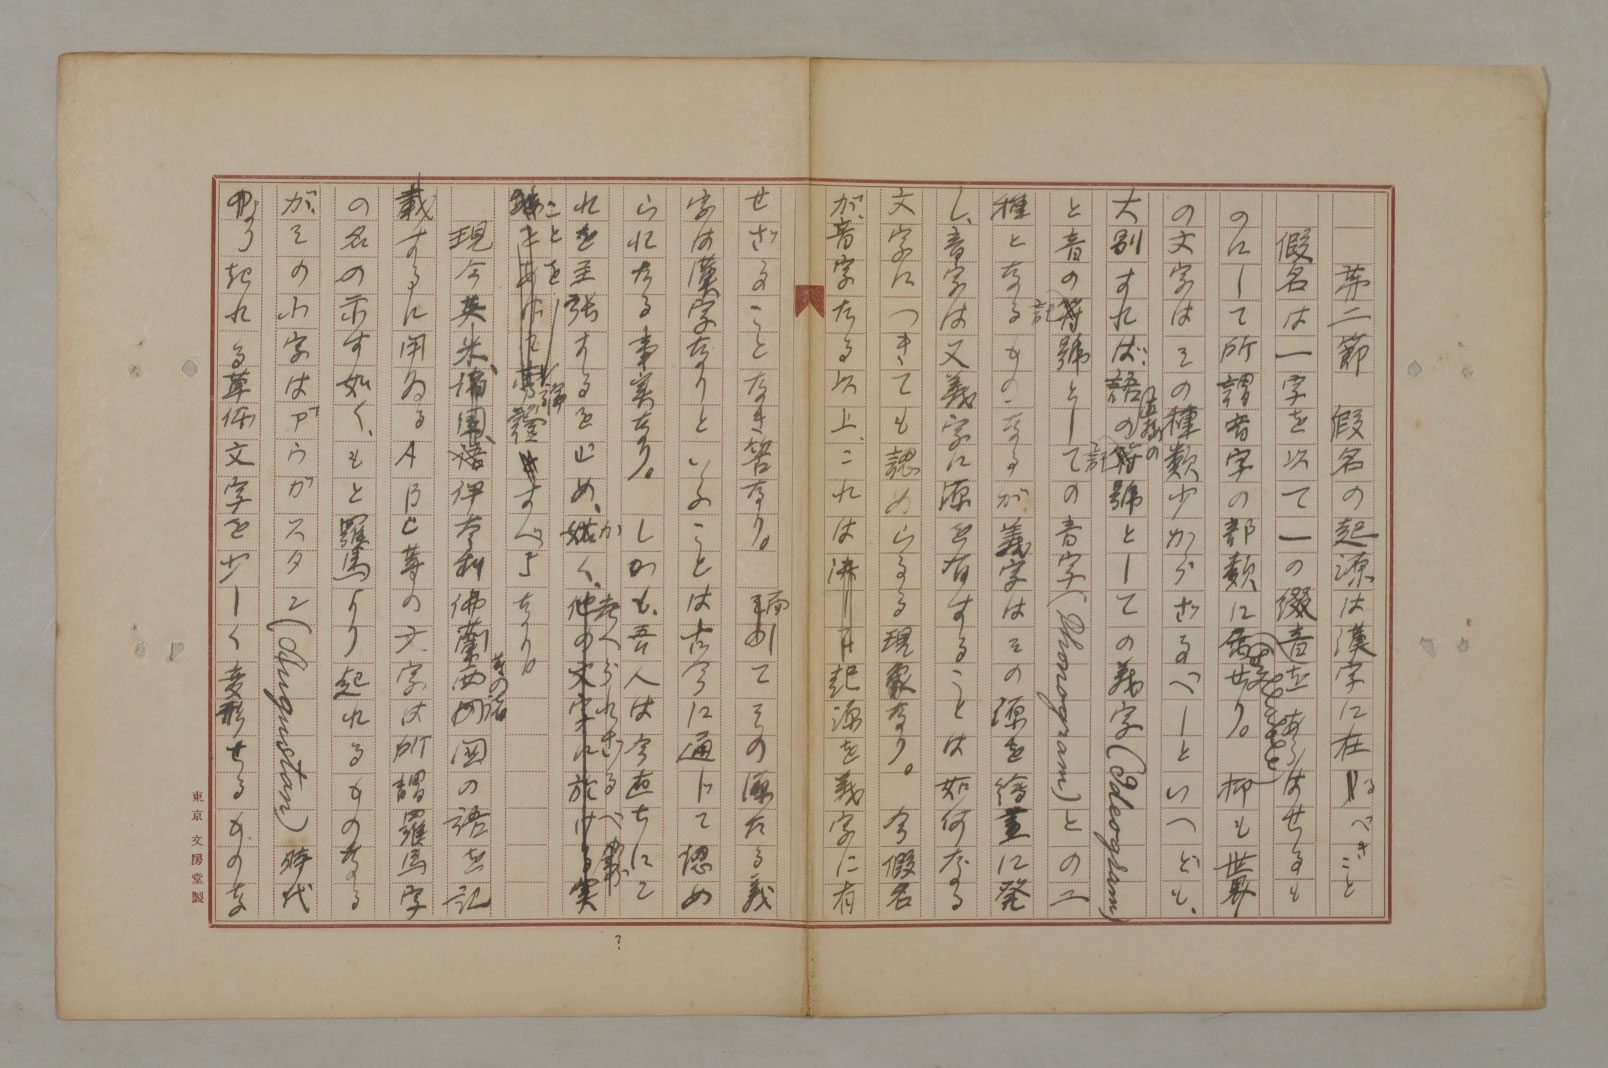 第二節　假名の起源は漢字に在るべきこと
假名は一字を以て一の綴音をあらはせるも
のにして所謂音字の部類に屬せり。抑も世界
の文字はその種類少からざるべしといへども、
大別すれば、語の符號としての義字(Ideogram)
と音の符號としての音字(Phonogram)との二
種となるものなるが、義字はその源を繪畫に發
し、音字は又義字に源を有することは如何なる
文字につきても認めらるる現象なり。今假名
が、音字たる以上、これは起源を義字に有
せざることなき筈なり。而してその源たる義
字は漢字なりといふことは古今に通じて認め
られたる事實なり。しかも、吾人は今直ちにこ
れを主張するを止め、姑く、他の文字に於ける実
ことを すべきなり。
現今英、米、獨、伊太利、佛蘭西の國の語を記
載するに用ゐるABC等の文字は所謂羅馬字
の名の示す如く、もと羅馬より起れるものなる
が、その小字はアウガスタン(Augustan)時代
より起れる草体文字を少しく変形せるものな
東京 文房堂製